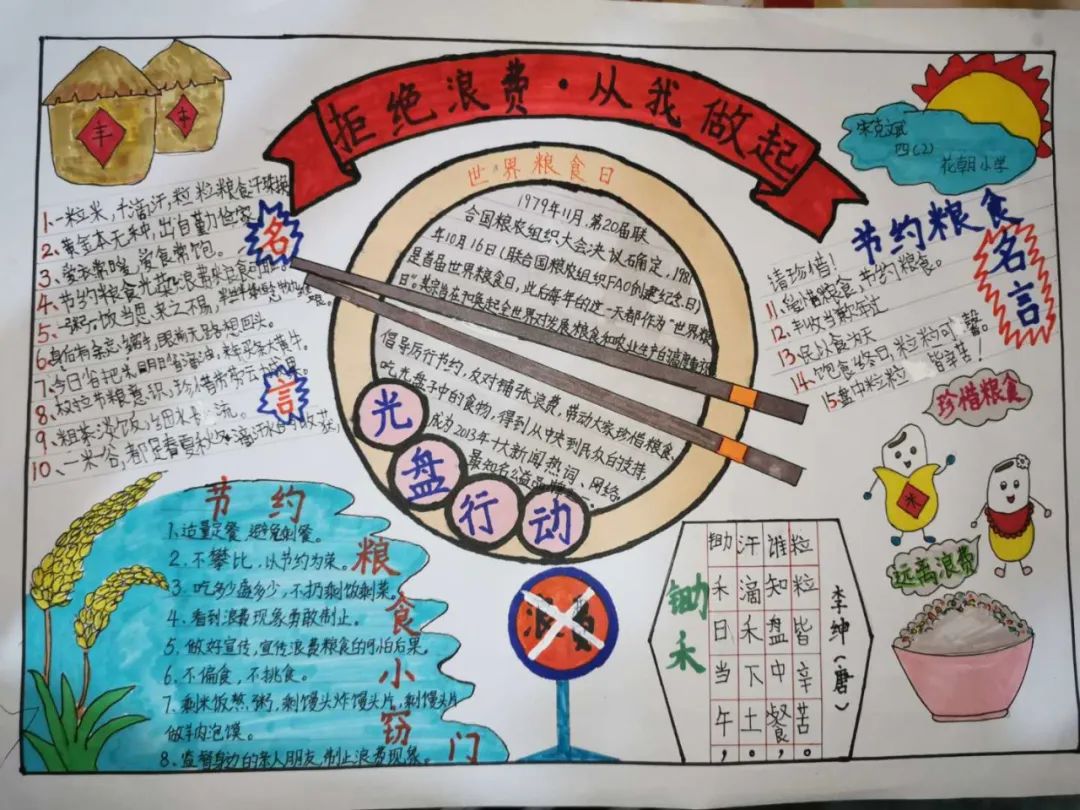 拒绝浪费·从我做起
宋克斌
四(2)
花朝小学
世界粮食日
1979年11月,第20届联
合国粮农组织大会决议确定,1981
年10月16日(联合国粮农组织FAO创建纪念日)
是首届世界粮食日,此后每年的这一天都作为"世界粮
日"。其宗旨在
世界对发展粮食和农业生产的高度重视
倡导厉行节约,反对铺张浪费,带动大家珍惜粮食
吃光盘子中的食物,得到从中央到民众的支持
成为2013年十大新闻热词、网络
最知名公益品牌之一
光盘行动
名言
1、一粒米,千滴汗,粒粒粮食汗珠换
2、黄金本无种,出自勤俭家
3、爱衣常暖,爱食常饱。
4、节约粮食光荣,浪费粮食可耻。
5、一粥一饭,当思来之不易,半丝半缕,恒念物力维艰
6、身后有余忘缩手,眼前无路想回头。
7、今日省把米,明日省滴油,来年买条大黄牛。
8、
节粮意识,珍惜劳动成果。
9、粗茶淡饭,细水长流。
10、一米一谷,都是春夏秋
滴汗水的收获
节约粮食
名言
请珍惜!
11、
粮食,节约粮食。
12、丰收当歉年过
13、民以食为天
14、饱食终日,粒米约可
馨。
15、盘中粒粒
皆辛苦!
珍惜粮食
禾
远离浪费
丰
丰
节约粮食小窍门
1、适量定餐,避免剩餐。
2、不攀比,以节约为荣。
3、吃多少盛多少,不扔剩饭剩菜。
4、看到浪费现象勇敢制止。
5、做好宣传,宣传浪费粮食的可怕后果。
6、不偏食,不挑食。
7、剩米饭熬粥,剩馒头炸馒头片,剩馒头片
做羊肉泡馍。
8、监督身边的亲人朋友,制止浪费现象。
锄禾
李绅(唐)
锄禾日当午,
汗滴禾下土。
谁知盘中餐,
粒粒皆辛苦。